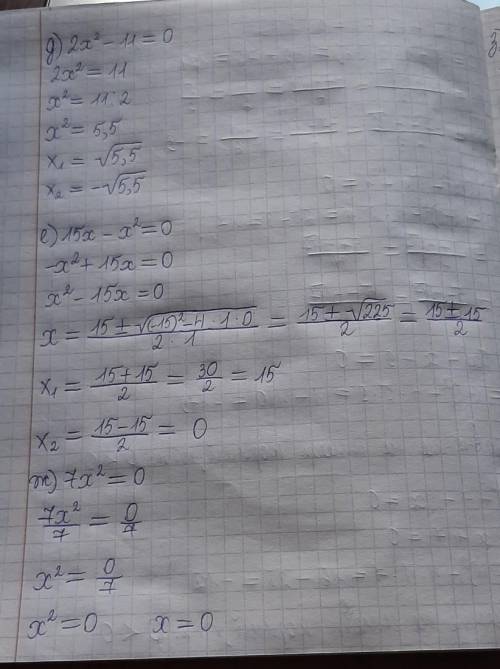 д) 2x² - 11 = 0
2x² = 11
x² = 11 : 2
x² = 5,5
x₁ = √5,5
x₂ = -√5,5
е) 15x - x² = 0
-x² + 15x = 0
x² - 15x = 0
x = (15 ± √((-15)² - 4 · 1 · 0))/(2 · 1) = (15 ± √225)/2 = (15 ± 15)/2
x₁ = (15 + 15)/2 = 30/2 = 15
x₂ = (15 - 15)/2 = 0
ж) 7x² = 0
7x²/7 = 0/7
x² = 0/7
x² = 0 x = 0